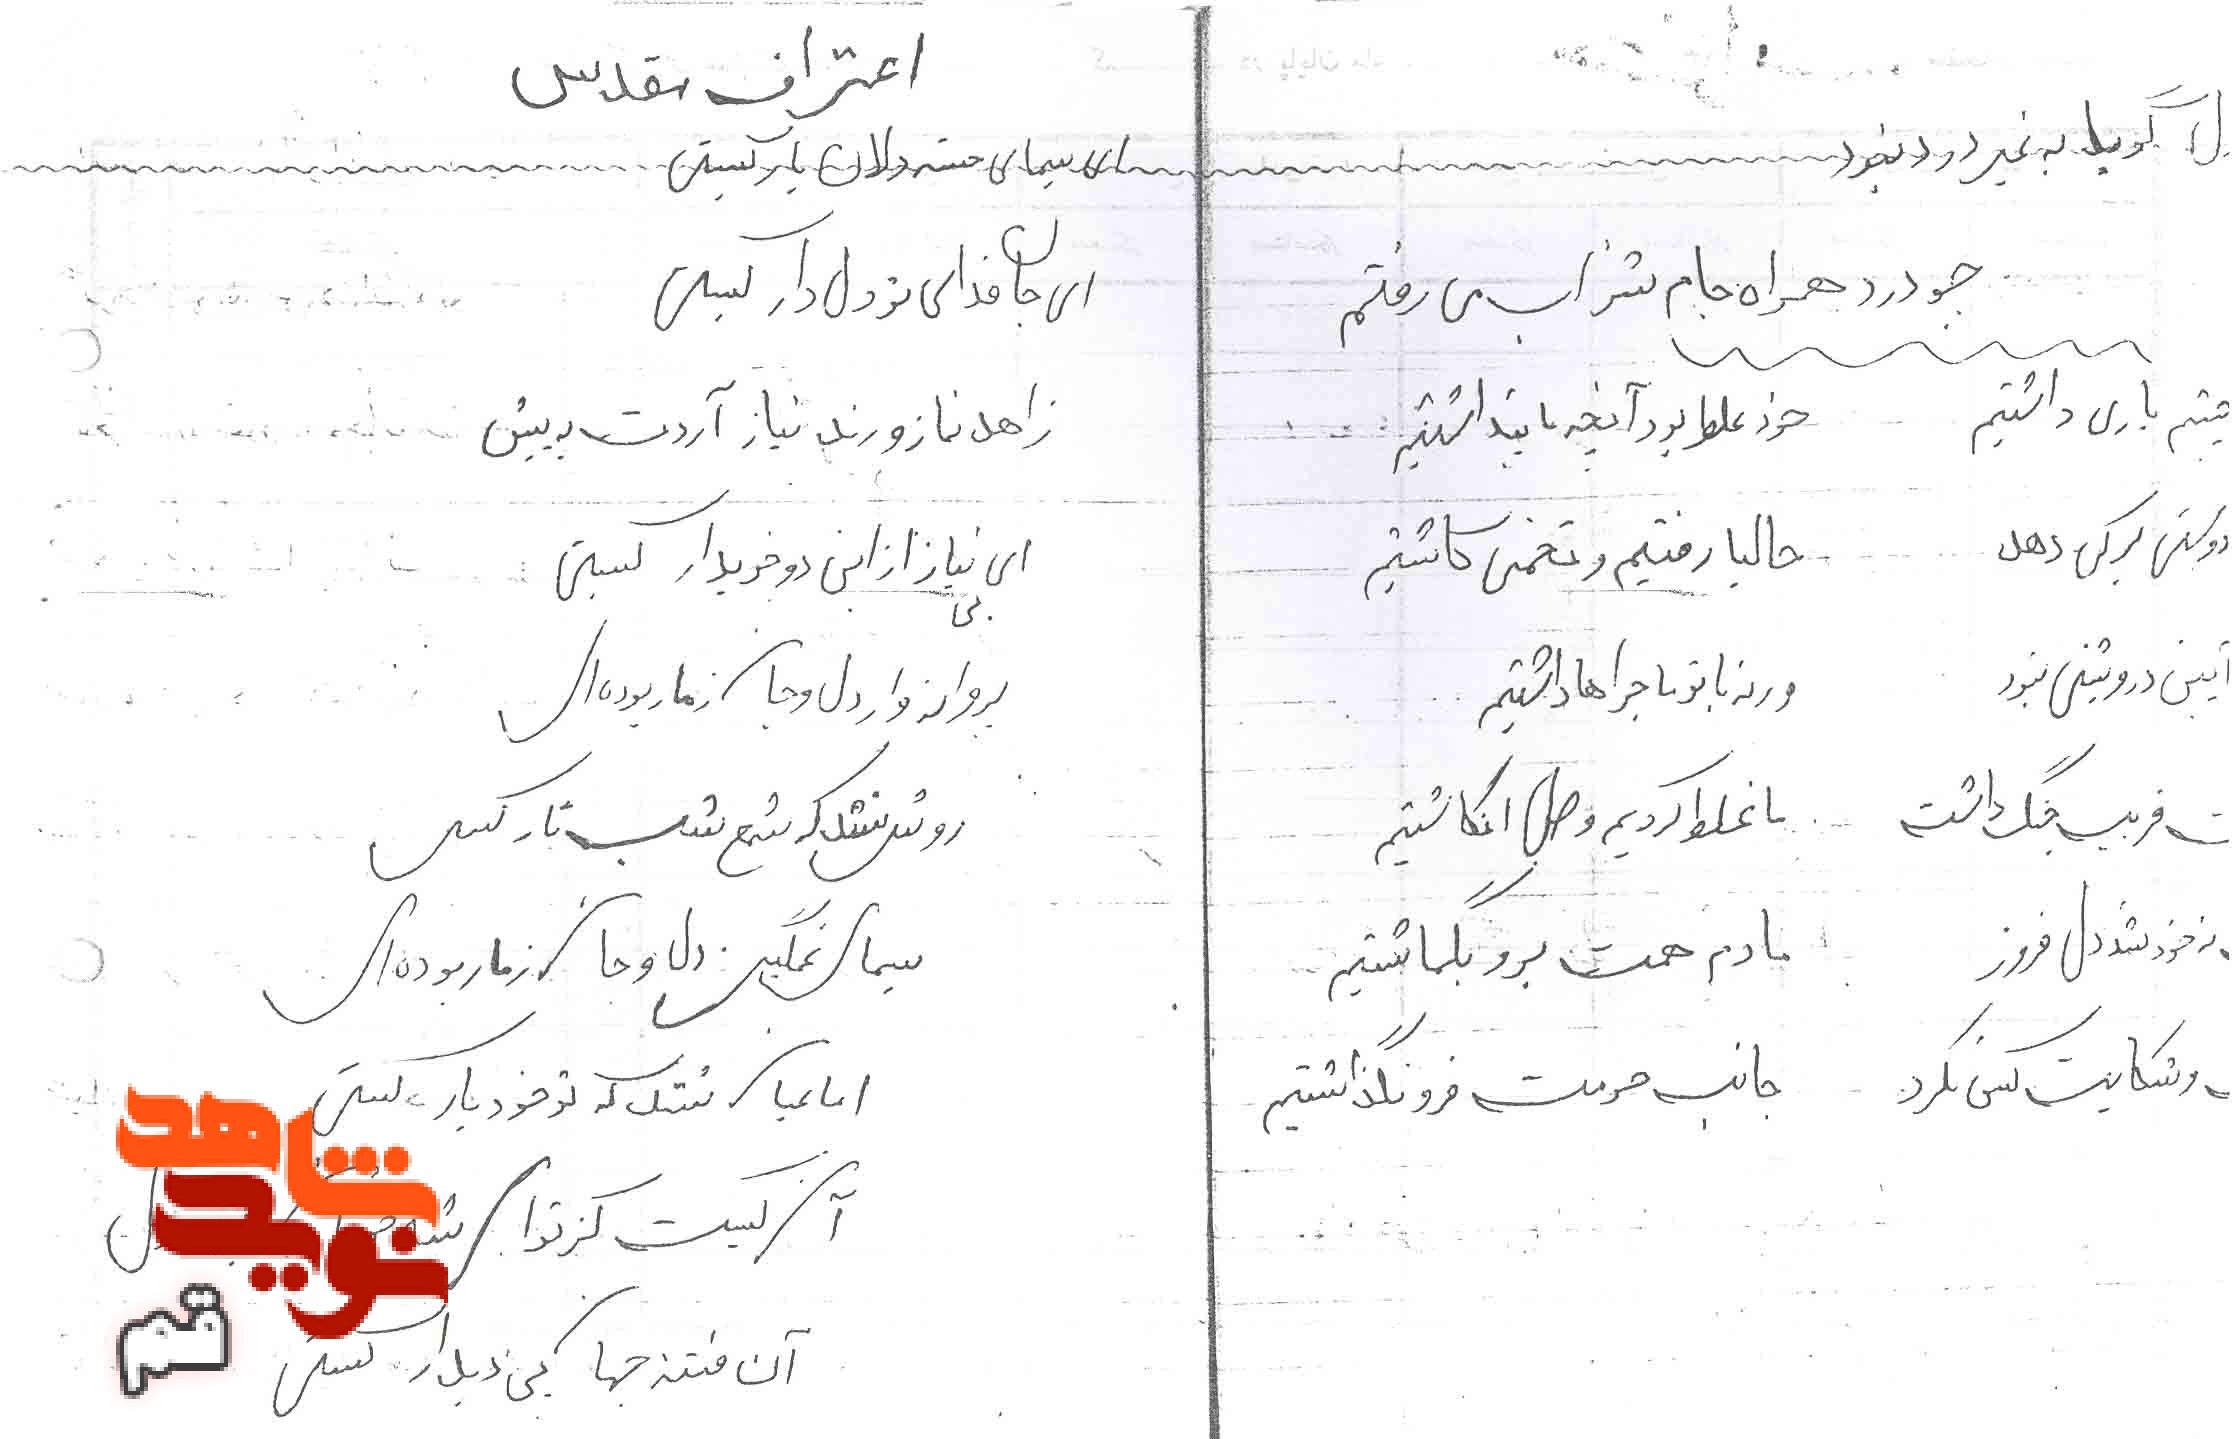 گوید به غیر درد نبود
چو درد همراه جام شراب می رفتم
یاری داشتیم خود غلط بود آنچه ما پنداشتیم
دوستی بر کی دهد حالیا رفتیم و تخمی کاشتیم
آیین درویشی نبود ورنه با تو ماجراها داشتیم
فریب جنگ داشت ما غلط کردیم و صلح انگاشتیم
نه خود شد دل فروز ما دم همت برو بگماشتیم
و شکایت کس نکرد جانب حرمت فرو نگذاشتیم
اعتراف مقدس
ای سیمای خسته دلان یار کیستی
ای جان فدای تو دل دار کیستی
زاهد نماز و رند نیاز آردت به پیش
ای بی نیاز از این دو خریدار کیستی
پروانه وار دل و جان ز ما ربوده ای
روشن نشد که شمع شب تار کیستی
سیمای غمگین دل و جان ز ما ربوده ای
اما عیان نشد که تو خود یار کیستی
آن کیست کز تو
آن فتنه جهان پی دیدار کیستی
شاهد
نوید
قم